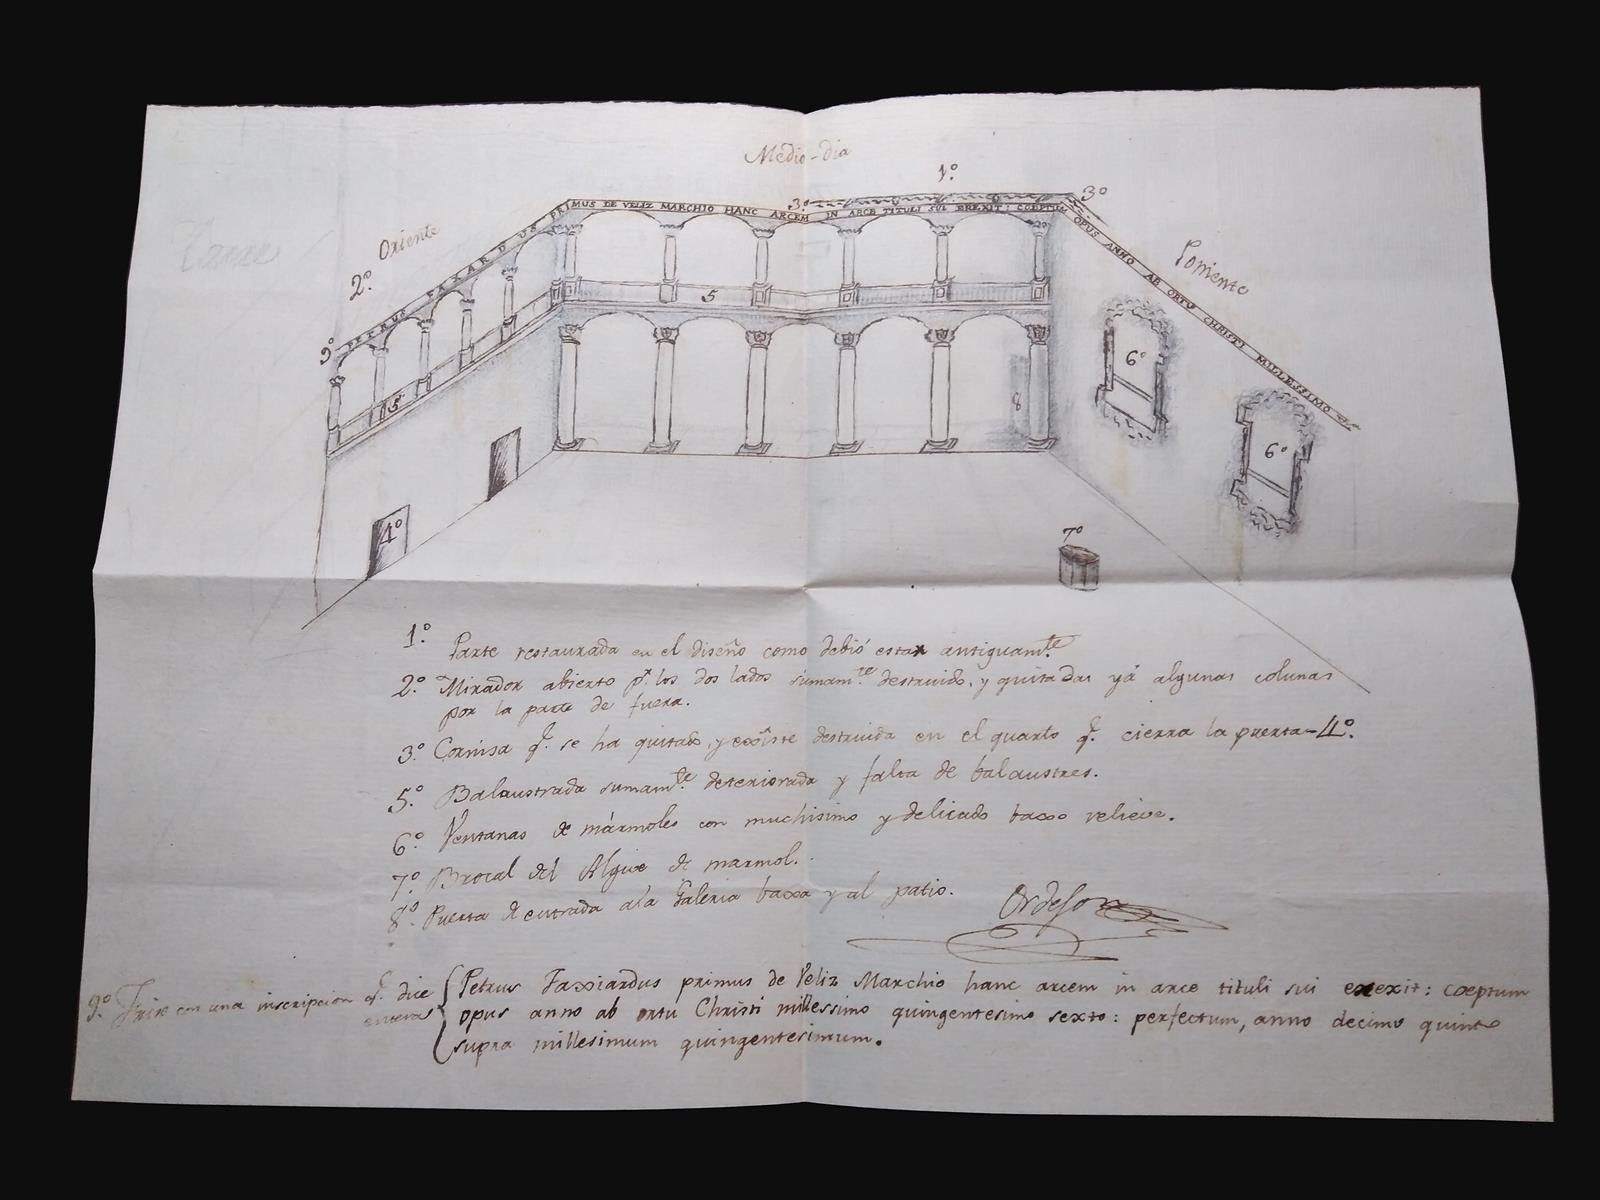 Medio-dia
1º
3º
3º
PETRUS FAXARDUS PRIMUS DE VELIZ MARCHIO HANC ARCEM IN ARCE TITULI SUI EREXIT: COEPTUM OPUS ANNO AB ORTU CHRISTI MILLESSIMO
Oriente
2º
Poniente
9º
5
5
8
6º
6º
4º
7º
1º. Parte restaurada en el diseño como debió estar antiguamte
2º Mirador abierto pr. los dos lados sumamte. destruido, y quitadas yá algunas colunas
por la parte de fuera.
3º Cornisa q. se ha quitado, y existe destruida en el quarto q. cierra la puerta-4º.
5º Balaustrada sumamte. deteriorada y falta de balaustres.
6º Ventanas de mármoles con muchisimo y delicado baxo relieve.
7º Brocal del Algive de marmol.
8º. Puerta de entrada ala Galeria baxa y al patio.
9º Frise con una inscripcion q. dice
entera
Petrus Faxiardus primus de Veliz Marchio hanc arcem in arce tituli sui erexit: coeptum
opus anno ab ortu Christi millessimo quingentesimo sexto: perfectum, anno decimo quinto
supra millesimum quingentesimum.